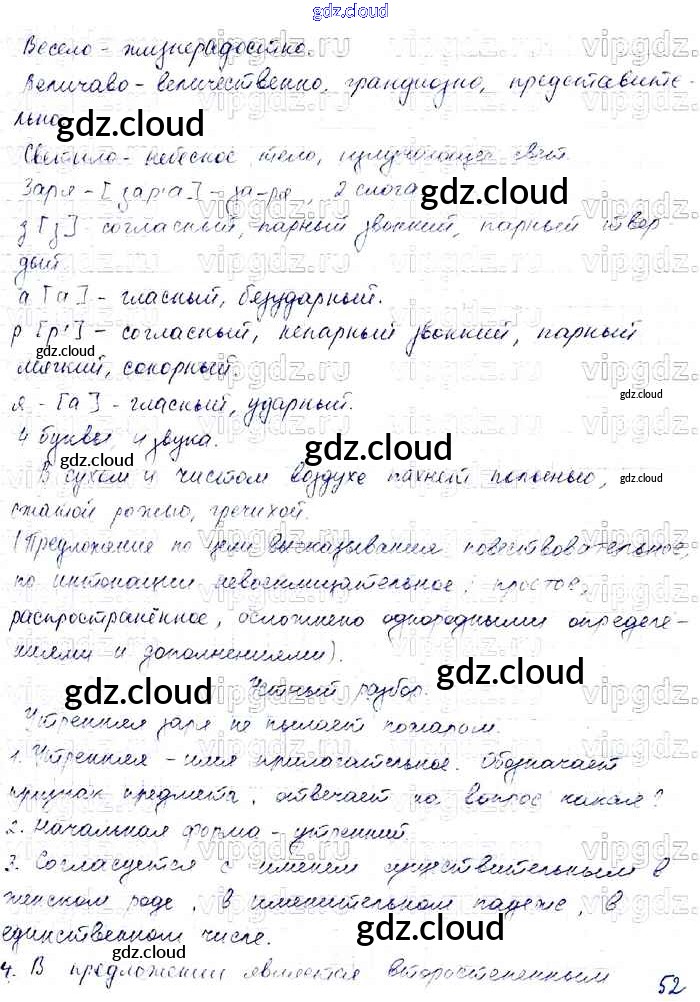 gdz.cloud
Весело - жизнерадостно.
Величаво - величественно, грандиозно, представите-
льно.
gdz.cloud
Светило - небесное тело, излучающее свет.
Заря - [зар'а] - за-ря, 2 слога
gdz.cloud
з [з] - согласный, парный звонкий, парный твер
дый.
а [а] - гласный, безударный.
р [р'] - согласный, непарный звонкий, парный
gdz.cloud
мягкий, сонорный.
gdz.cloud
я - [а] - гласный, ударный.
4 буквы, 4 звука.
gdz.cloud
gdz.cloud
В сухом и чистом воздухе пахнет полынью,
gdz.cloud
сжатой рожью, гречихой.
(Предложение по цели высказывания повествовательное,
по интонации невосклицательное, простое,
распространённое, осложнено однородными определе-
ниями и дополнениями).
gdz.cloud
Устный разбор.
gdz.cloud
Утренняя заря не пылает пожаром.
1. Утренняя - имя прилагательное. Обозначает
признак предмета, отвечает на вопрос какая?
2. Начальная форма - утренний.
3. Согласуется с именем существительным в
женском роде, в именительном падеже, в
gdz.cloud
gdz.cloud
единственном числе.
4. В предложении является второстепенным
52